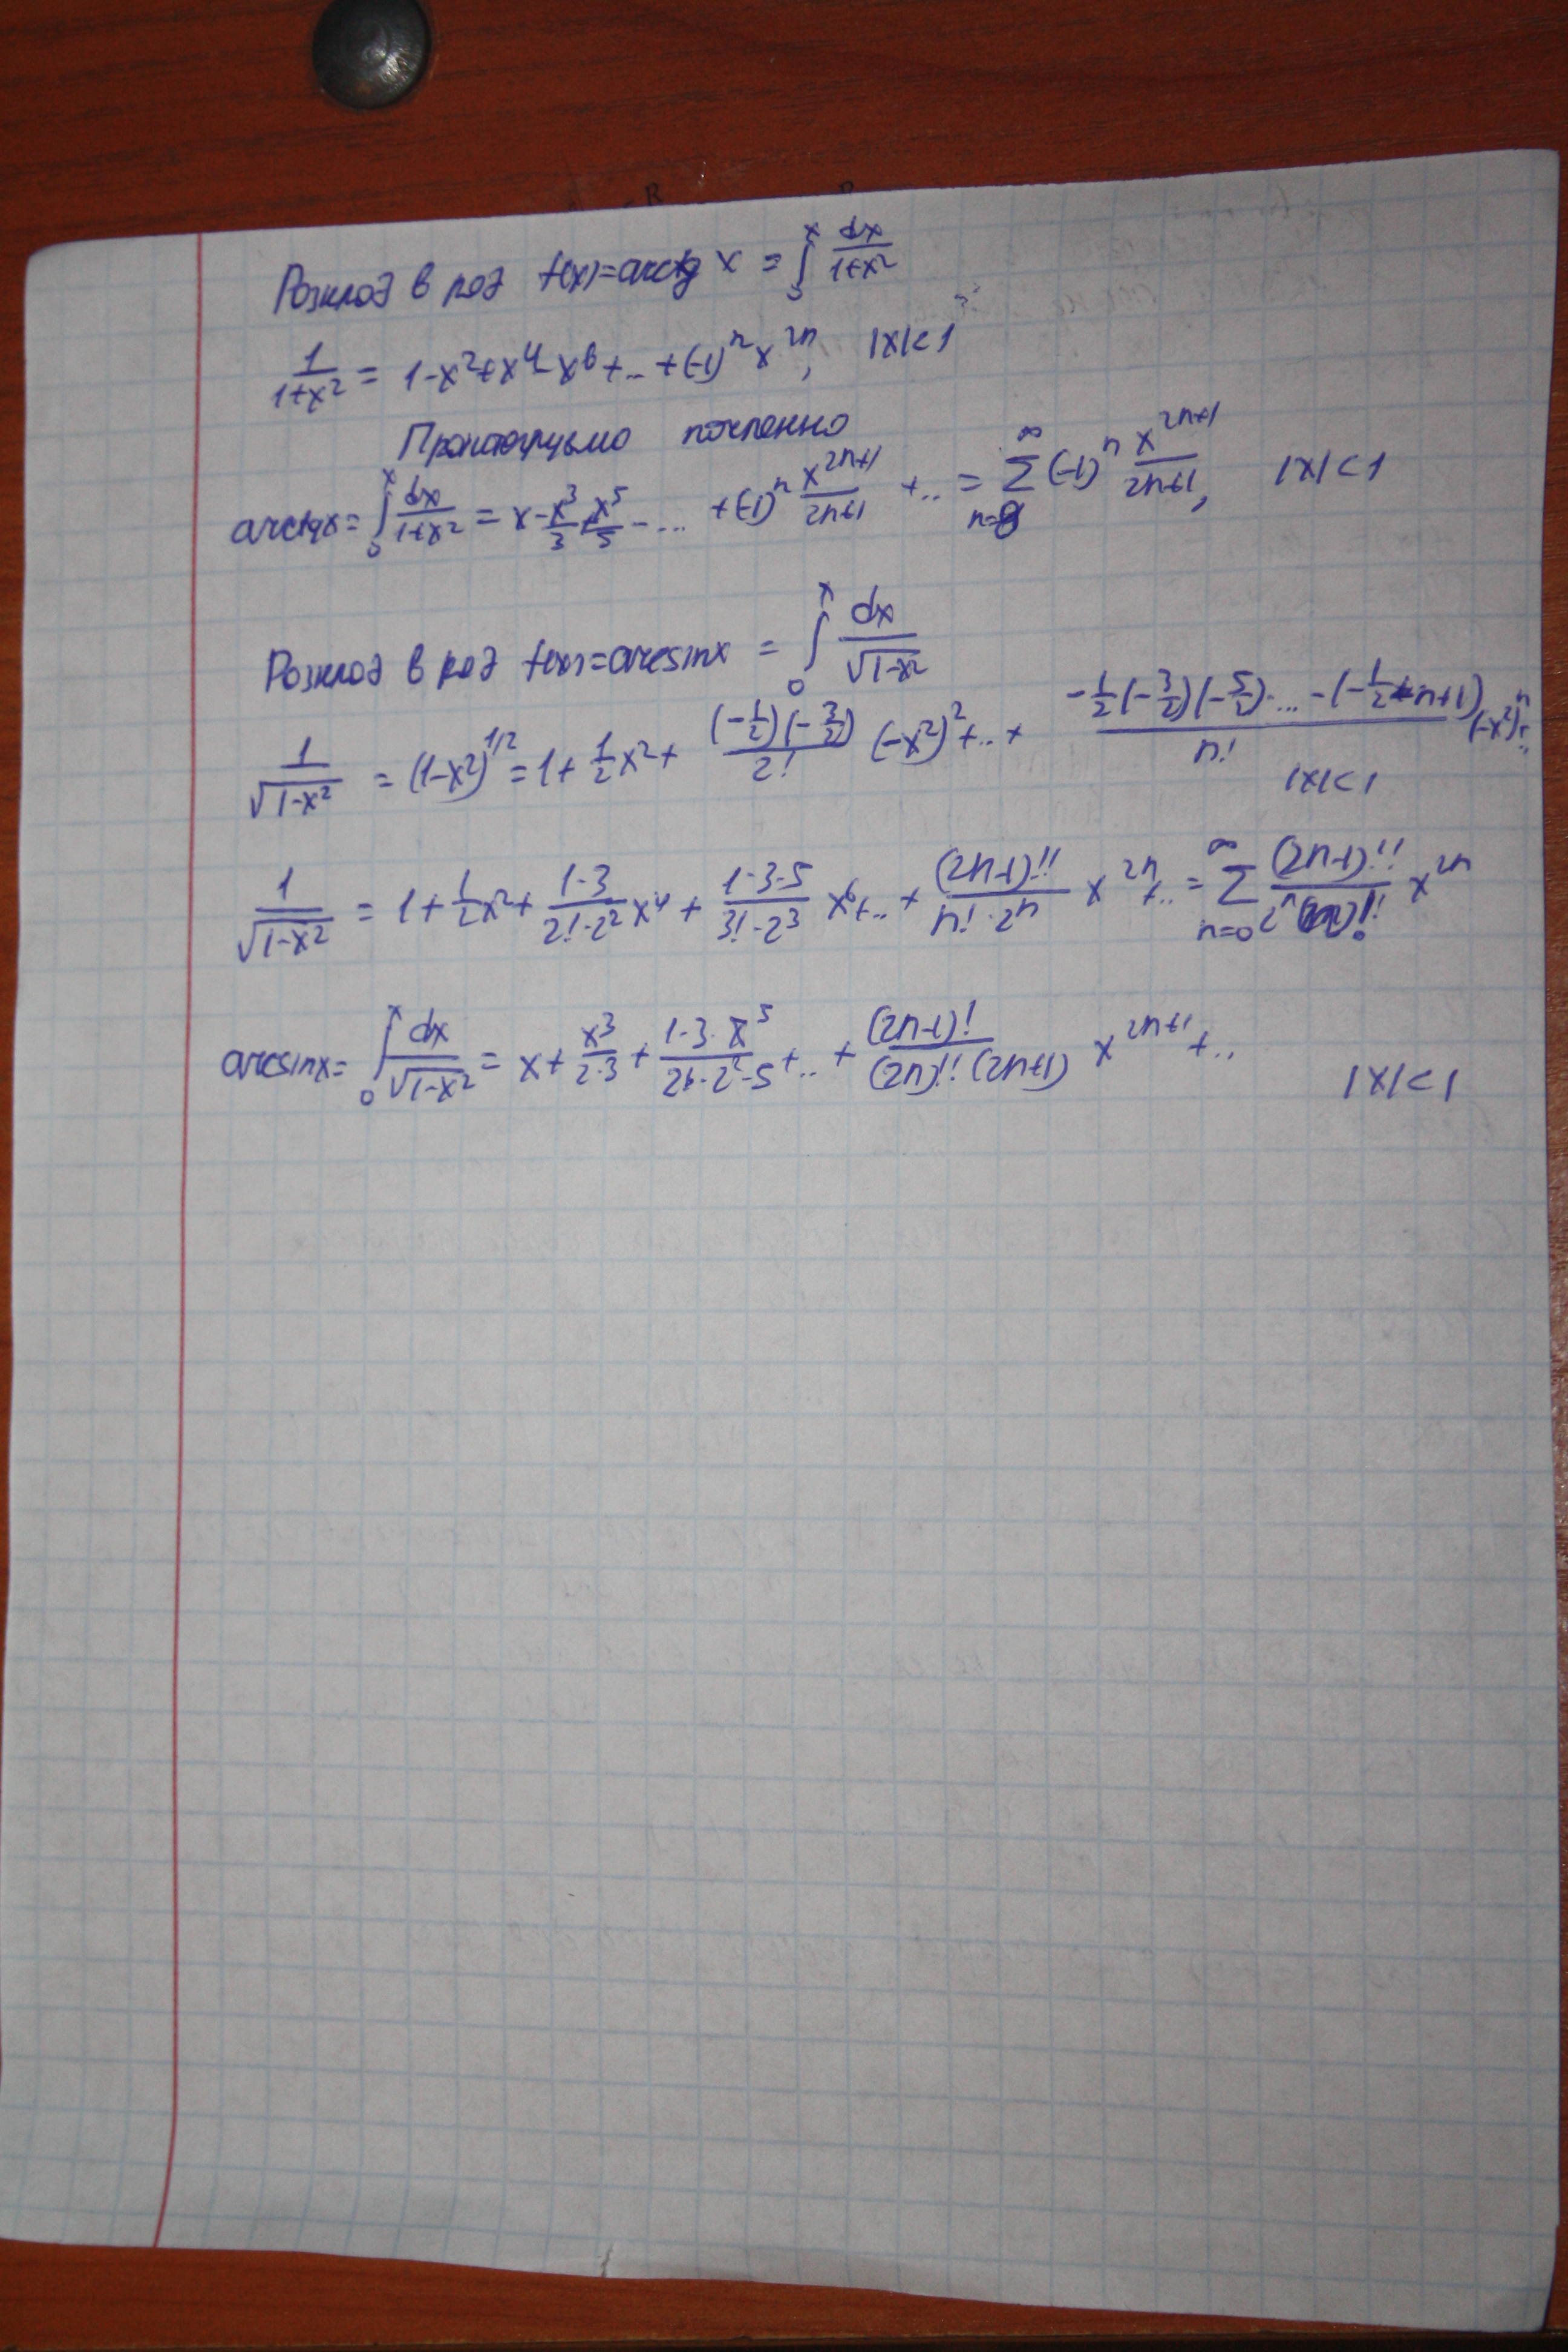 Розклад в ряд f(x)=arctg x = ∫₀ˣ dx/(1+x²)
1/(1+x²) = 1-x²+x⁴-x⁶+..+(-1)ⁿx²ⁿ, |x|<1
Проінтегруємо почленно
arctgx= ∫₀ˣ dx/(1+x²) = x-x³/3+x⁵/5-... +(-1)ⁿ x²ⁿ⁺¹/(2n+1) +.. = Σ (-1)ⁿ x²ⁿ⁺¹/(2n+1), |x|<1
Розклад в ряд f(x)=arcsinx = ∫₀ˣ dx/√(1-x²)
1/√(1-x²) = (1-x²)^(1/2) = 1+1/2x²+ (-1/2)(-3/2)/2! (-x²)²+..+ -1/2(-3/2)(-5/2)·...·(-1/2-n+1)/n! (-x²)ⁿ+..
|x|<1
1/√(1-x²) = 1+1/2x²+ 1·3/(2!·2²)x⁴ + 1·3·5/(3!·2³) x⁶+..+ (2n-1)!!/(n!·2ⁿ) x²ⁿ+.. = Σ (n=0, ∞) (2n-1)!!/ x²ⁿ
arcsinx= ∫₀ˣ dx/√(1-x²) = x+ x³/(2·3) + 1·3·x⁵/ +..+ (2n-1)!/((2n)!!(2n+1)) x²ⁿ⁺¹+.. |x|<1